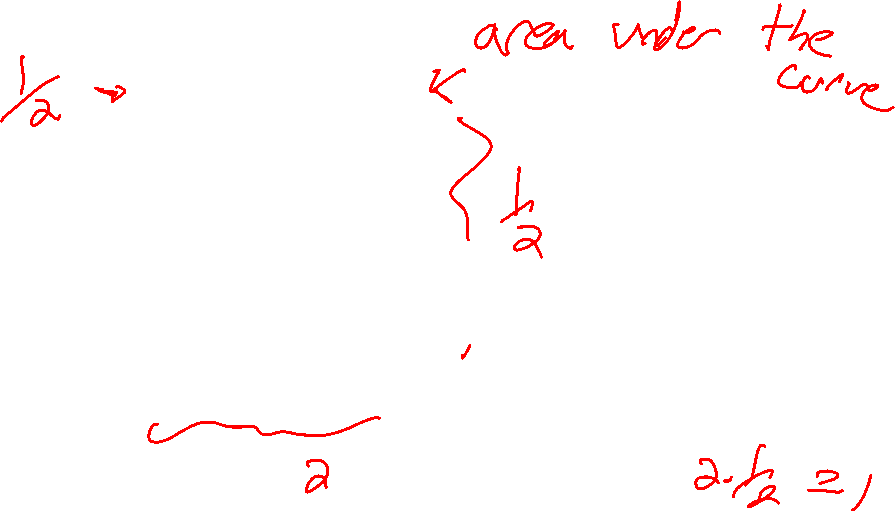 area under the
curve
1/2 →
1/2
2
2·1/2 = 1